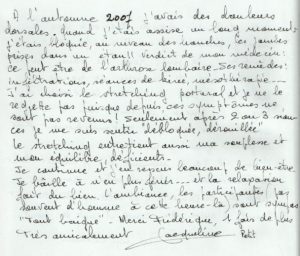 A l'automne 2007 j'avais des douleurs
dorsales. Quand j'étais assise un long moment
j'étais bloquée, au niveau des hanches, les jambes
prises dans un étau!! Verdict de mon médecin:
ce peut être de l'arthrose lombaire. Ses remèdes:
infiltrations, séances de kiné, mésothérapie...
J'ai choisi le stretching postural et je ne le
regrette pas puisque depuis ces symptômes ne
sont pas revenus! Seulement après 2 ou 3 séan
ces je me suis sentie débloquée, "dérouillée"
Le stretching entretient aussi ma souplesse et
mon équilibre, je le sens.
Je continue et j'en retire beaucoup de bien-être.
Je bâille à n'en plus finir... et la relaxation
fait du bien. L'ambiance les participantes (pas
souvent d'homme à cette heure-là sont sympas
"Tout baigne" - Merci Frédérique 1 fois de plus
Très amicalement Jacqueline Petit